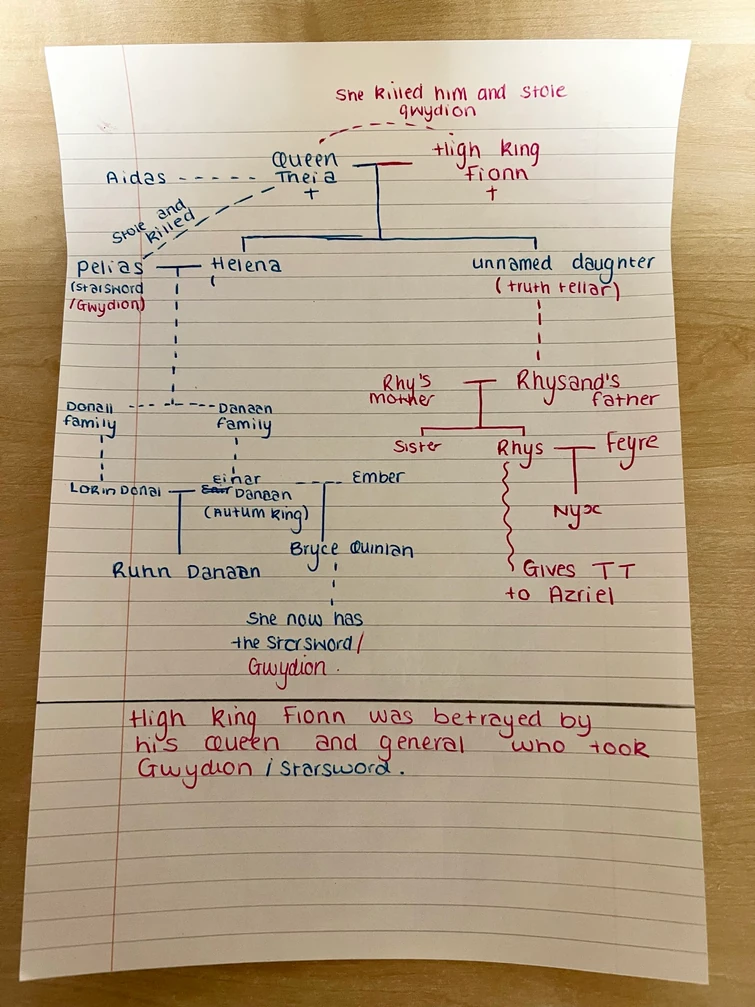 She killed him and stole
gwydion
Queen
Theia
+
High King
Fionn
+
Aidas
Stole and
killed
Pelias
(starsword
/Gwydion)
Helena
unnamed daughter
(truth tellar)
Rhy's
mother
Rhysand's
father
Donall
family
Danaan
family
Sister
Rhys
Feyre
Lorin Donal
Einar
Danaan
(Autum King)
Ember
Nyx
Bryce Quinlan
Ruhn Danaan
Gives TT
to Azriel
She now has
the Starsword/
Gwydion.
High King Fionn was betrayed by
his Queen and general who took
Gwydion / Starsword.